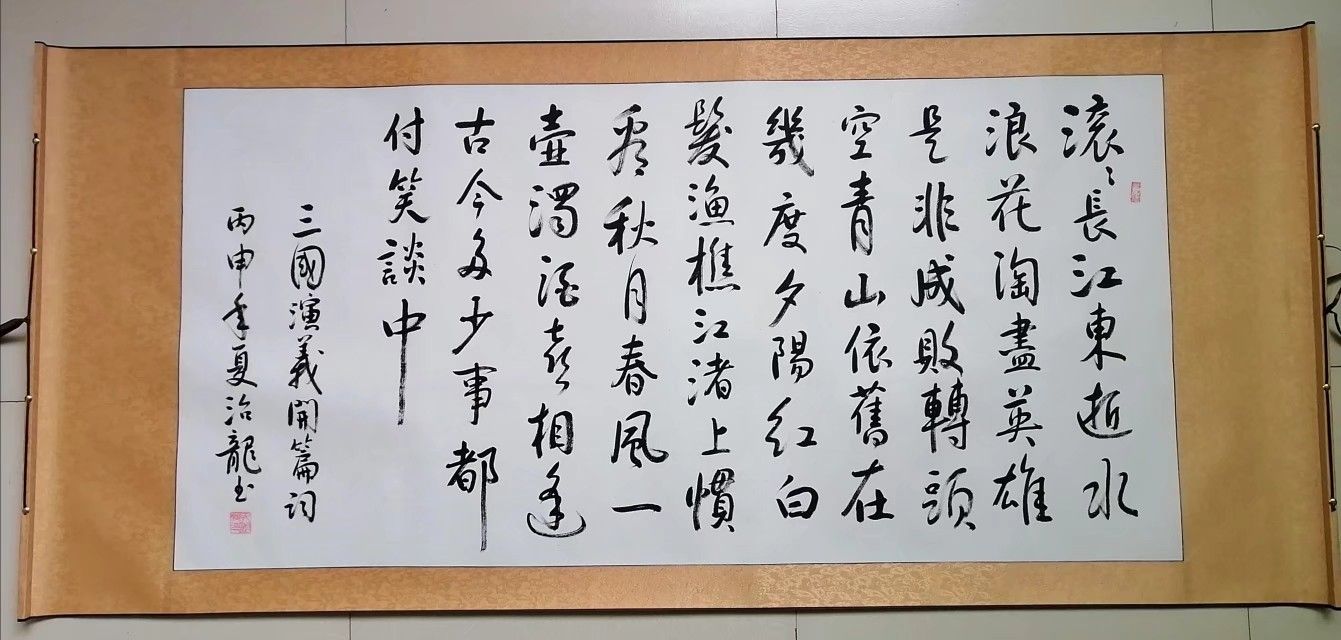 滚〻長江東逝水
浪花淘盡英雄
是非成敗轉頭
空青山依舊在
幾度夕陽紅白
髮漁樵江渚上慣
看秋月春風一
壺濁酒喜相逢
古今多少事都
付笑談中
三國演義開篇詞
丙申年夏治龍书